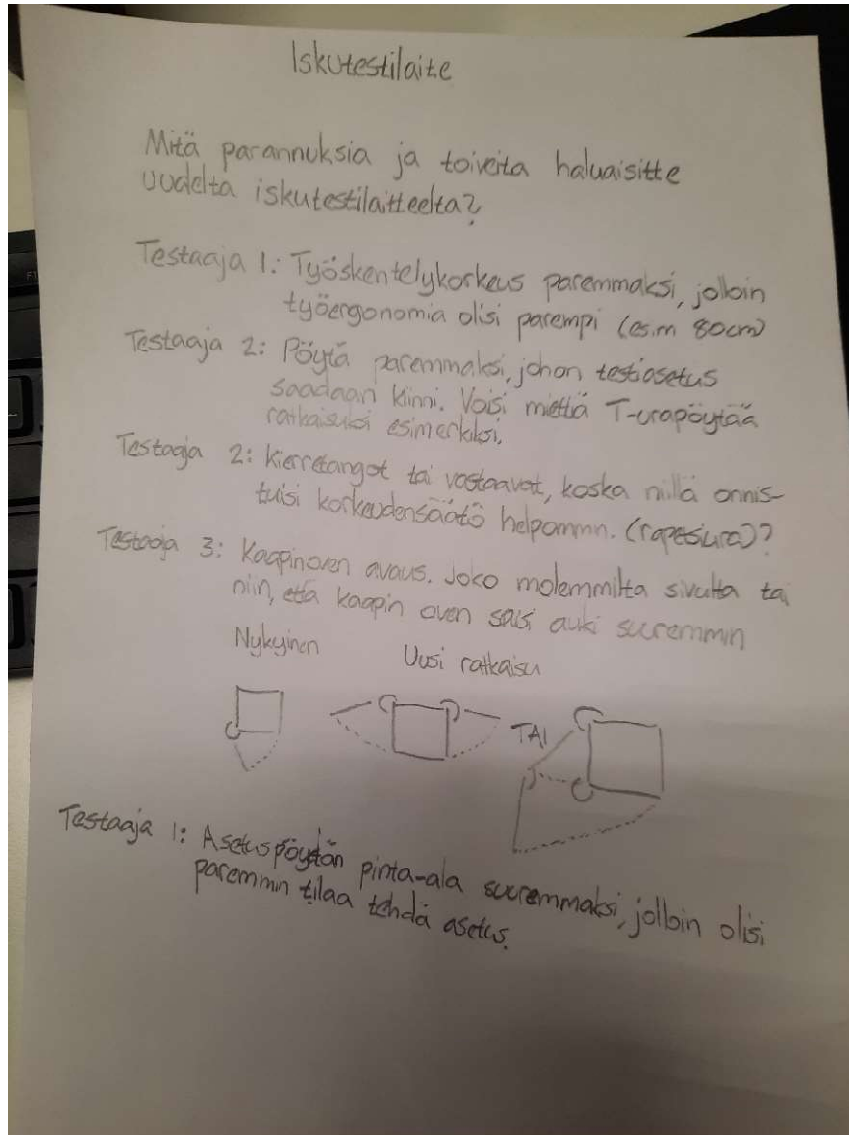 Iskutestilaite
Mitä parannuksia ja toiveita haluaisitte
uudelta iskutestilaitteelta?
Testaaja 1: Työskentelykorkeus paremmaksi, jolloin
työergonomia olisi parempi (es.m 80cm)
Testaaja 2: Pöytä paremmaksi, johon testiasetus
saadaan kiinni. Voisi miettiä T-urapöytää
ratkaisuksi esimerkiksi.
Testaaja 2: Kierretangot tai vastaavat, koska niillä onnis-
tuisi korkeudensäätö helpommin. (rapesiura)?
Testaaja 3: Kaapinoven avaus. Joko molemmilta sivulta tai
niin, että kaapin oven saisi auki suuremmin
Nykyinen Uusi ratkaisu
TAI
Testaaja 1: Asetuspöytän pinta-ala suuremmaksi, jolloin olisi
paremmin tilaa tehdä asetus.